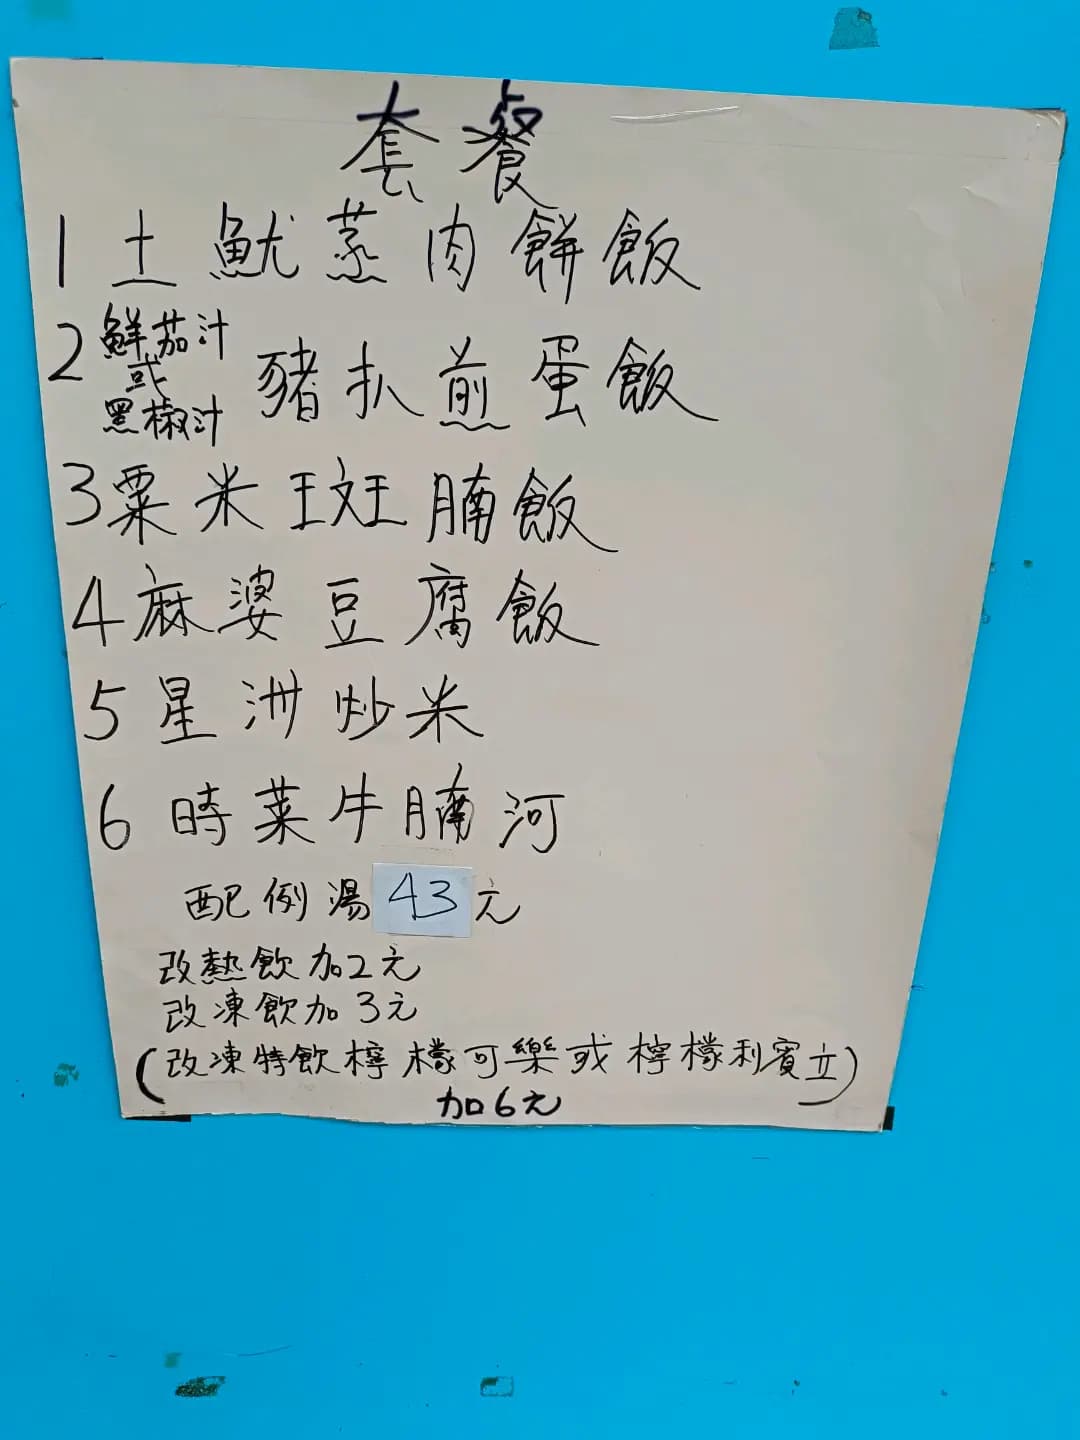 套餐
1 土魷蒸肉餅飯
2 鮮茄汁或黑椒汁 豬扒煎蛋飯
3 粟米斑腩飯
4 麻婆豆腐飯
5 星洲炒米
6 時菜牛腩河
配例湯 43 元
改熱飲加2元
改凍飲加3元
(改凍特飲檸檬可樂或檸檬利賓立)
加6元